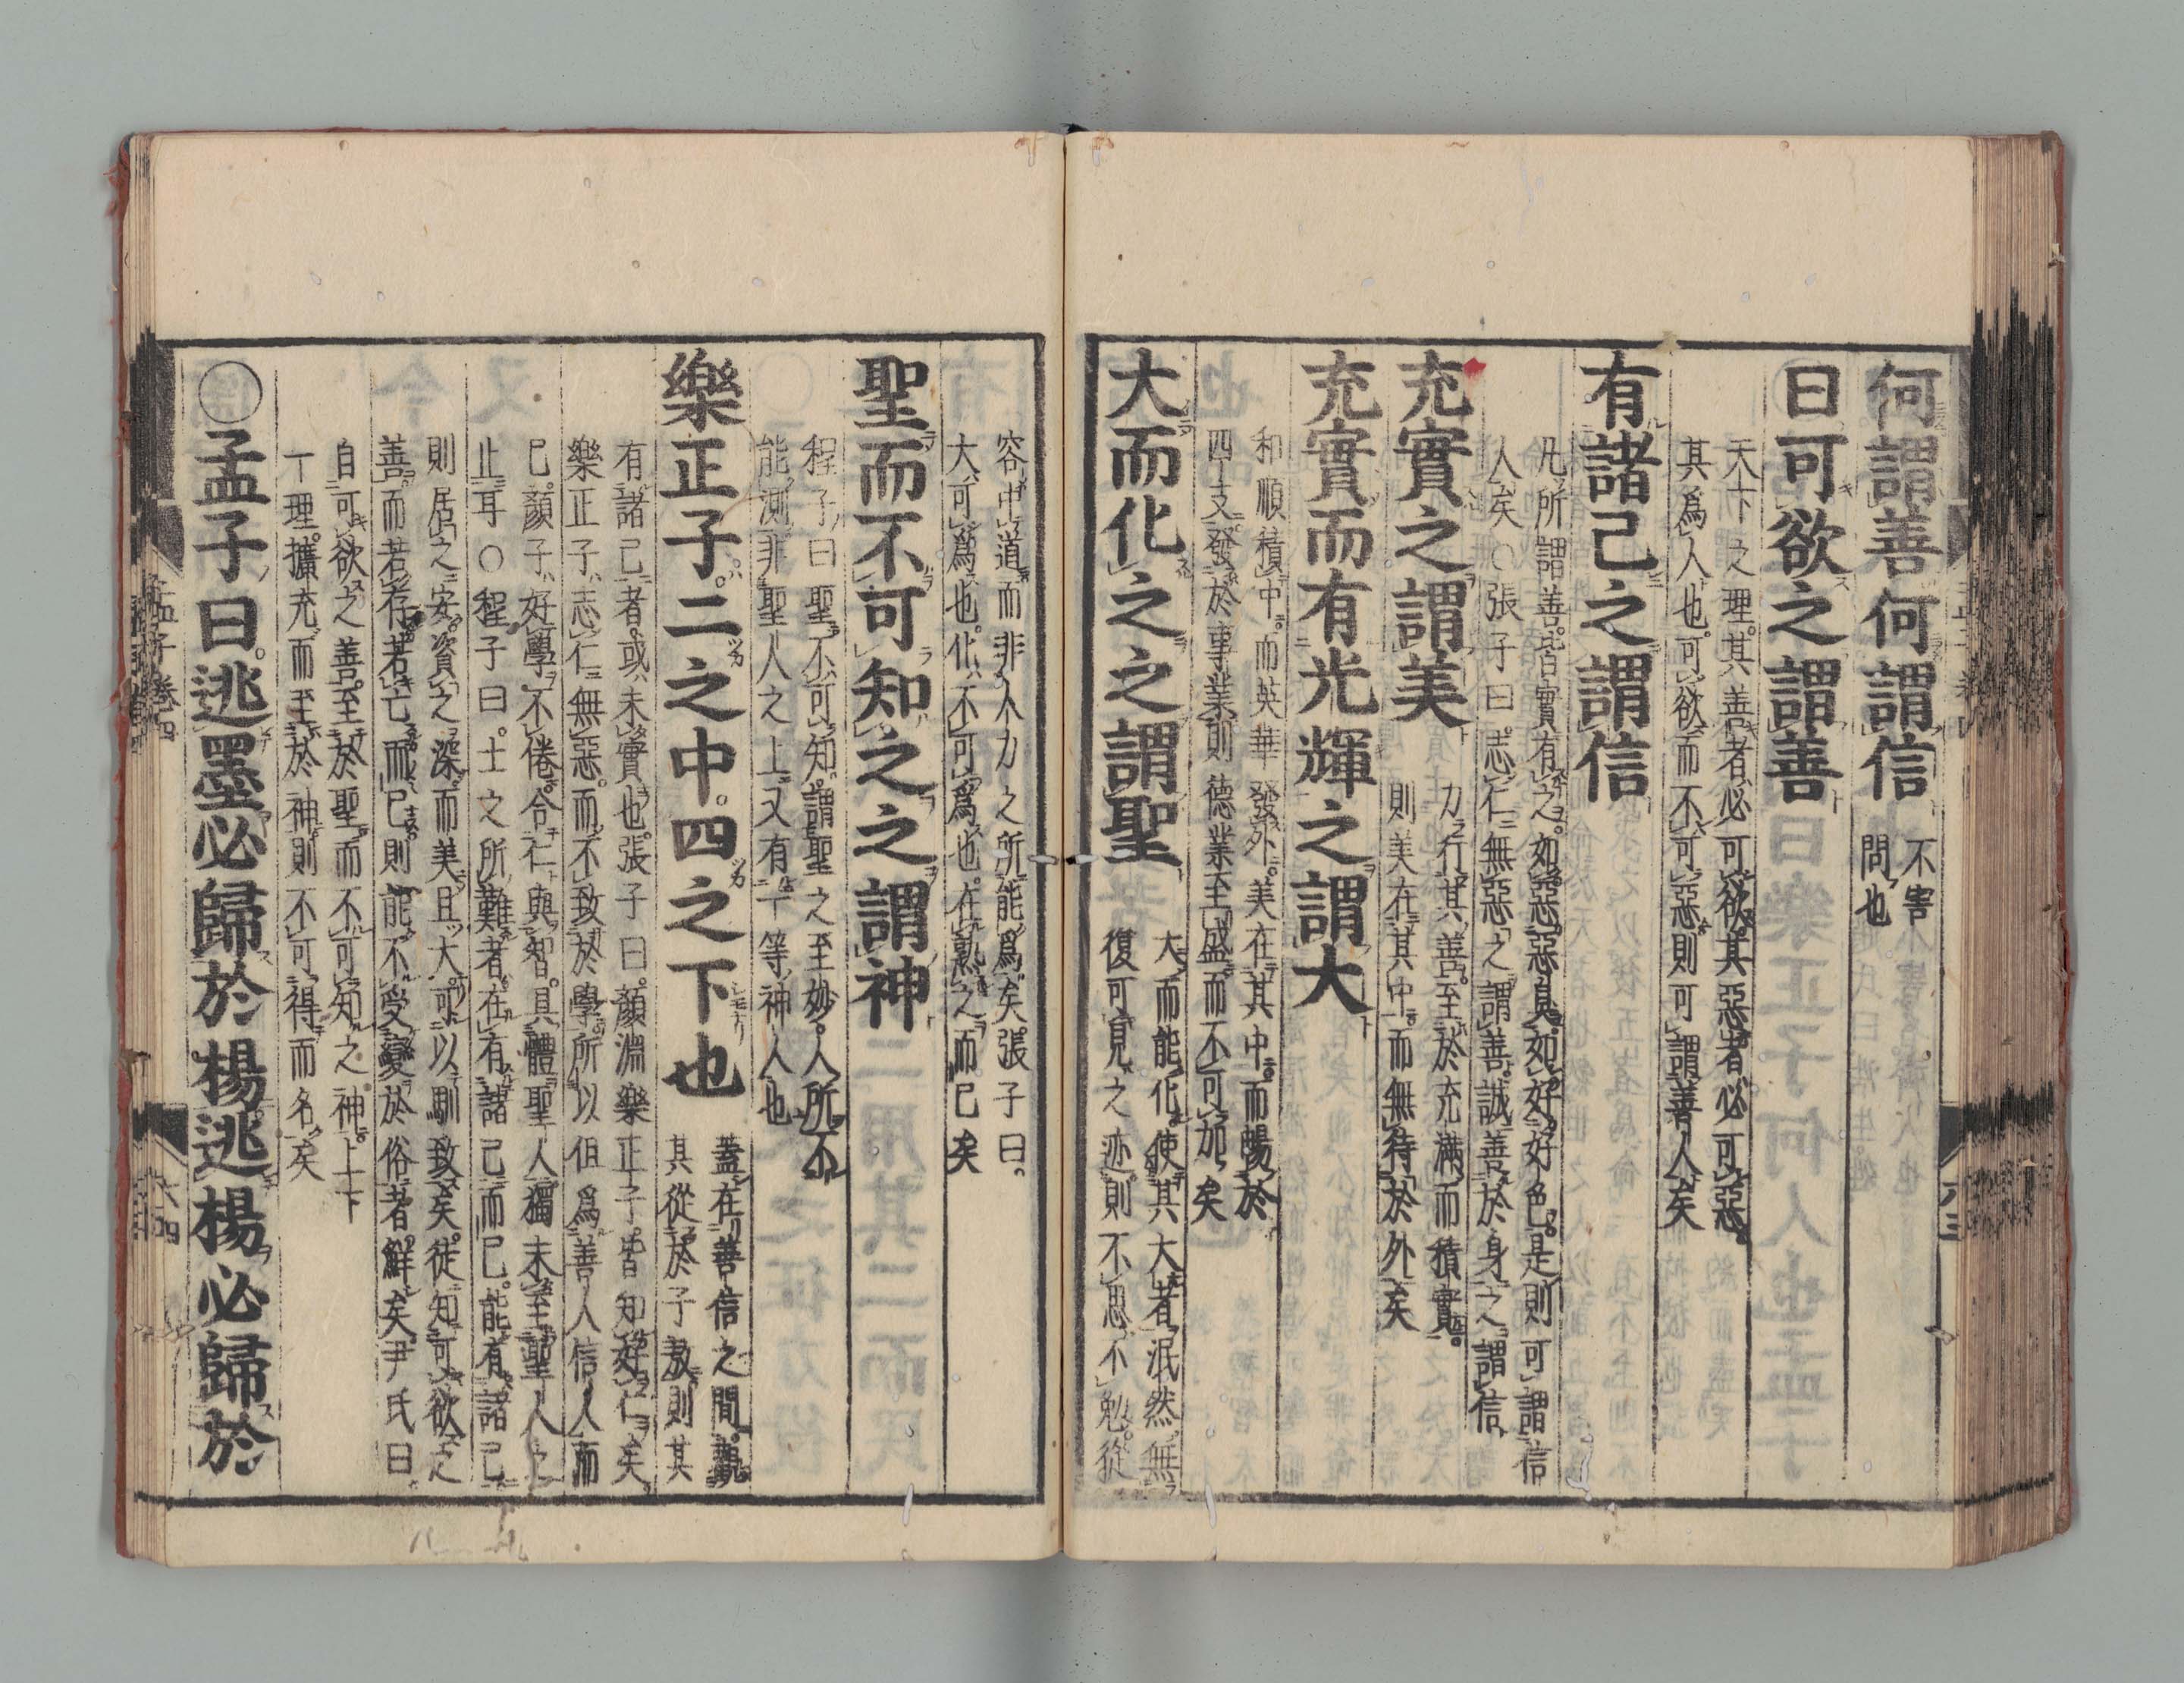 何謂善何謂信
不害
問也
曰可欲之謂善
天下之理其善者必可欲其惡者必可惡
其爲人也可欲而不可惡則可謂善人矣
有諸己之謂信
凡所謂善皆實有之如惡惡臭如好好色是則可謂信
人矣○張子曰志仁無惡之謂善誠善於身之謂信
充實之謂美
力行其善至於充滿而積實
則美在其中而無待於外矣
充實而有光輝之謂大
和順積中而英華發外美在其中而暢於
四支發於事業則德業至盛而不可加矣
大而化之之謂聖
大而能化使其大者泯然無
復可見之迹則不思不勉從
容中道而非人力之所能爲矣張子曰
大可爲也化不可爲也在熟之而已矣
聖而不可知之之謂神
程子曰聖不可知謂聖之至妙人所不
能測非聖人之上又有一等神人也
樂正子二之中四之下也
蓋在善信之間觀
其從於子敖則其
有諸己者或未實也張子曰顏淵樂正子皆知好仁矣
樂正子志仁無惡而不致於學所以但爲善人信人而
已顏子好學不倦合仁與智具體聖人獨未至聖人之
止耳○程子曰士之所難者在有諸己而已能有諸己
則居之安資之深而美且大可以馴致矣徒知可欲之
善而若存若亡而已則能不受變於俗者鮮矣尹氏曰
自可欲之善至於聖而不可知之神上下
一理擴充而至於神則不可得而名矣
○孟子曰逃墨必歸於楊逃楊必歸於
孟子卷四
六四
六三